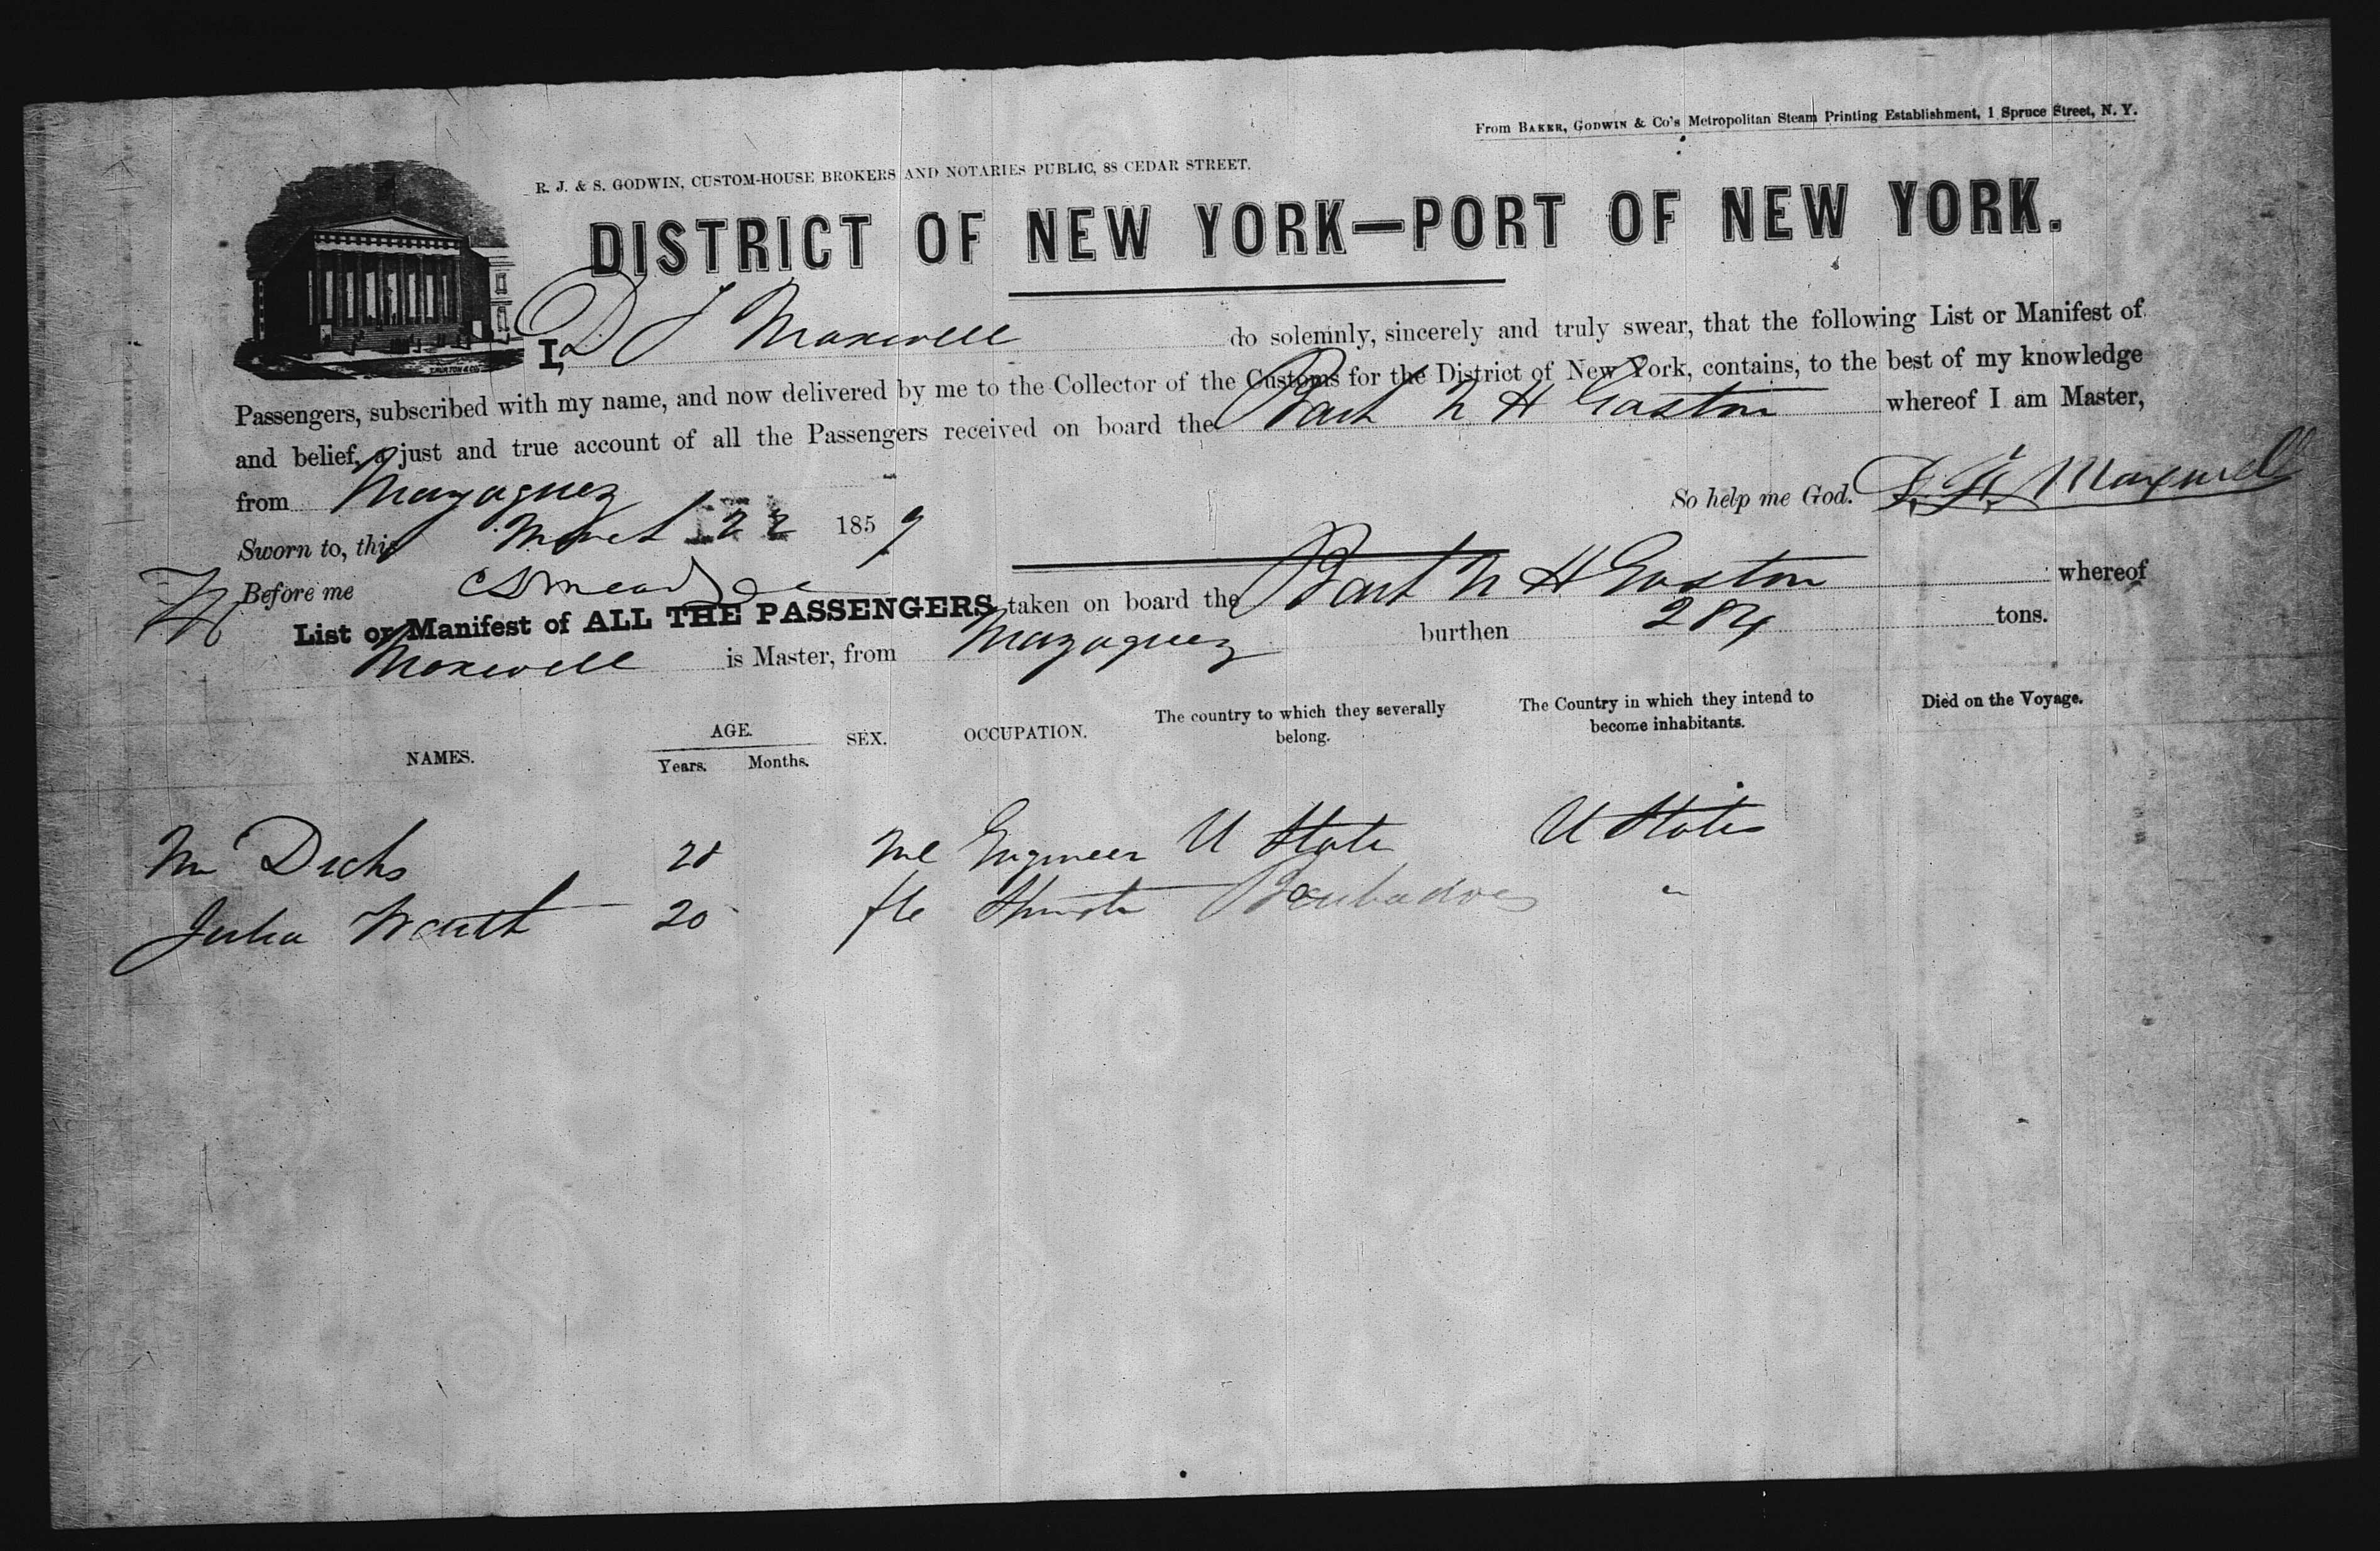 From BAKER, GODWIN & Co's Metropolitan Steam Printing Establishment, 1 Spruce Street, N. Y.
R. J. & S. GODWIN, CUSTOM-HOUSE BROKERS AND NOTARIES PUBLIC, 88 CEDAR STREET.
DISTRICT OF NEW YORK—PORT OF NEW YORK.
I, D J Maxwell do solemnly, sincerely and truly swear, that the following List or Manifest of
Passengers, subscribed with my name, and now delivered by me to the Collector of the Customs for the District of New York, contains, to the best of my knowledge
and belief, a just and true account of all the Passengers received on board the Bark N H Gaston whereof I am Master,
from Mayaguez
So help me God. Maxwell
Sworn to, this March 22 1859
Before me
List or Manifest of ALL THE PASSENGERS taken on board the Bark N H Gaston whereof
Maxwell is Master, from Mayaguez burthen 284 tons.
NAMES. AGE. Years. Months. SEX. OCCUPATION. The country to which they severally belong. The Country in which they intend to become inhabitants. Died on the Voyage.
Mr Dicks 28 Me Engineer U State U States
Julia 20 fle Barbadoes "